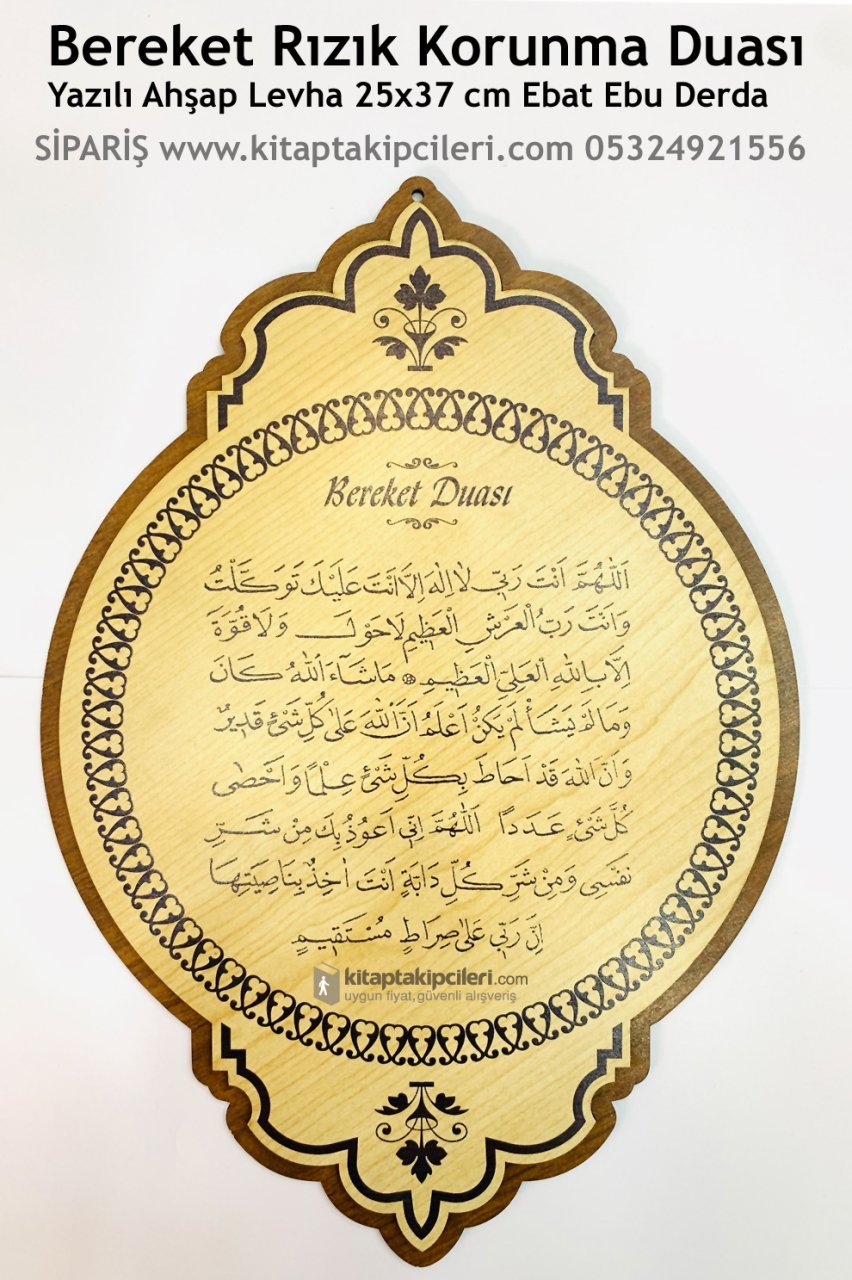 Bereket Rızık Korunma Duası
Yazılı Ahşap Levha 25x37 cm Ebat Ebu Derda
SİPARİŞ www.kitaptakipcileri.com 05324921556
Bereket Duası
اَللّٰهُمَّ اَنْتَ رَبّ۪ي لَا اِلٰهَ اِلَّا اَنْتَ عَلَيْكَ تَوَكَّلْتُ
وَاَنْتَ رَبُّ الْعَرْشِ الْعَظ۪يمِ لَا حَوْلَ وَلَا قُوَّةَ
اِلَّا بِاللّٰهِ الْعَلِيِّ الْعَظ۪يمِ ۞ مَا شَآءَ اللّٰهُ كَانَ
وَمَا لَمْ يَشَأْ لَمْ يَكُنْ اَعْلَمُ اَنَّ اللّٰهَ عَلٰى كُلِّ شَيْئٍ قَد۪يرٌ
وَاَنَّ اللّٰهَ قَدْ اَحَاطَ بِكُلِّ شَيْئٍ عِلْمًا وَاَحْصٰى
كُلَّ شَيْئٍ عَدَدًا اَللّٰهُمَّ اِنّ۪ي اَعُوذُ بِكَ مِنْ شَرِّ
نَفْس۪ي وَمِنْ شَرِّ كُلِّ دَابَّةٍ اَنْتَ اٰخِذٌ بِنَاصِيَتِهَا
اِنَّ رَبّ۪ي عَلٰى صِرَاطٍ مُسْتَق۪يمٍ
kitaptakipcileri.com
uygun fiyat,güvenli alışveriş